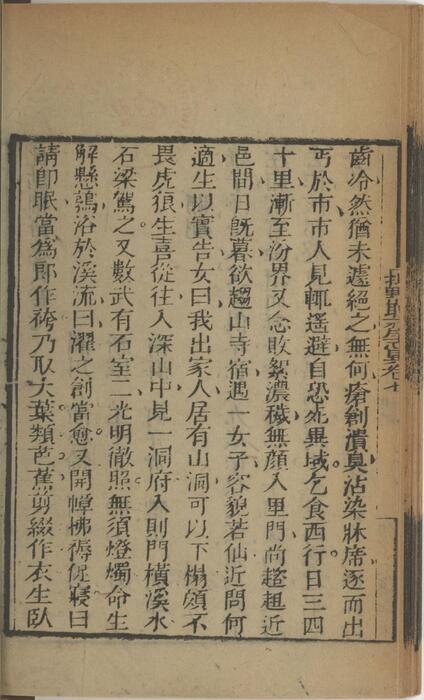 齒冷然猶未遽絕之無何瘡創潰臭沾染牀席逐而出
丐於市市人見輒遙避自恐死異域乞食西行日三四
十里漸至汾界又念敗絮濃穢無顏入里門尚趑趄近
邑間日既暮欲趨山寺宿遇一女子容貌若仙近問何
適生以實告女曰我出家人居有山洞可以下榻頗不
畏虎狼生喜從往入深山中見一洞府入則門橫溪水
石梁駕之又數武有石室二光明徹照無須燈燭命生
解懸鶉浴於溪流曰濯之創當愈又開幛拂褥促寢曰
請即眠當為郎作袴乃取大葉類芭蕉剪綴作衣生臥